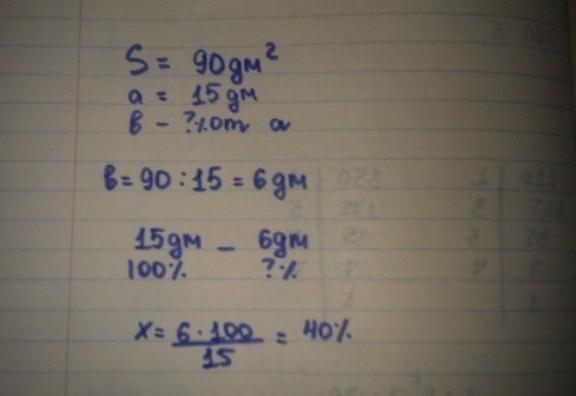 S = 90дм²
a = 15дм
в - ?% от а
в = 90 : 15 = 6дм
15дм - 6дм
100% ?%
x = 6 · 100 / 15 = 40%